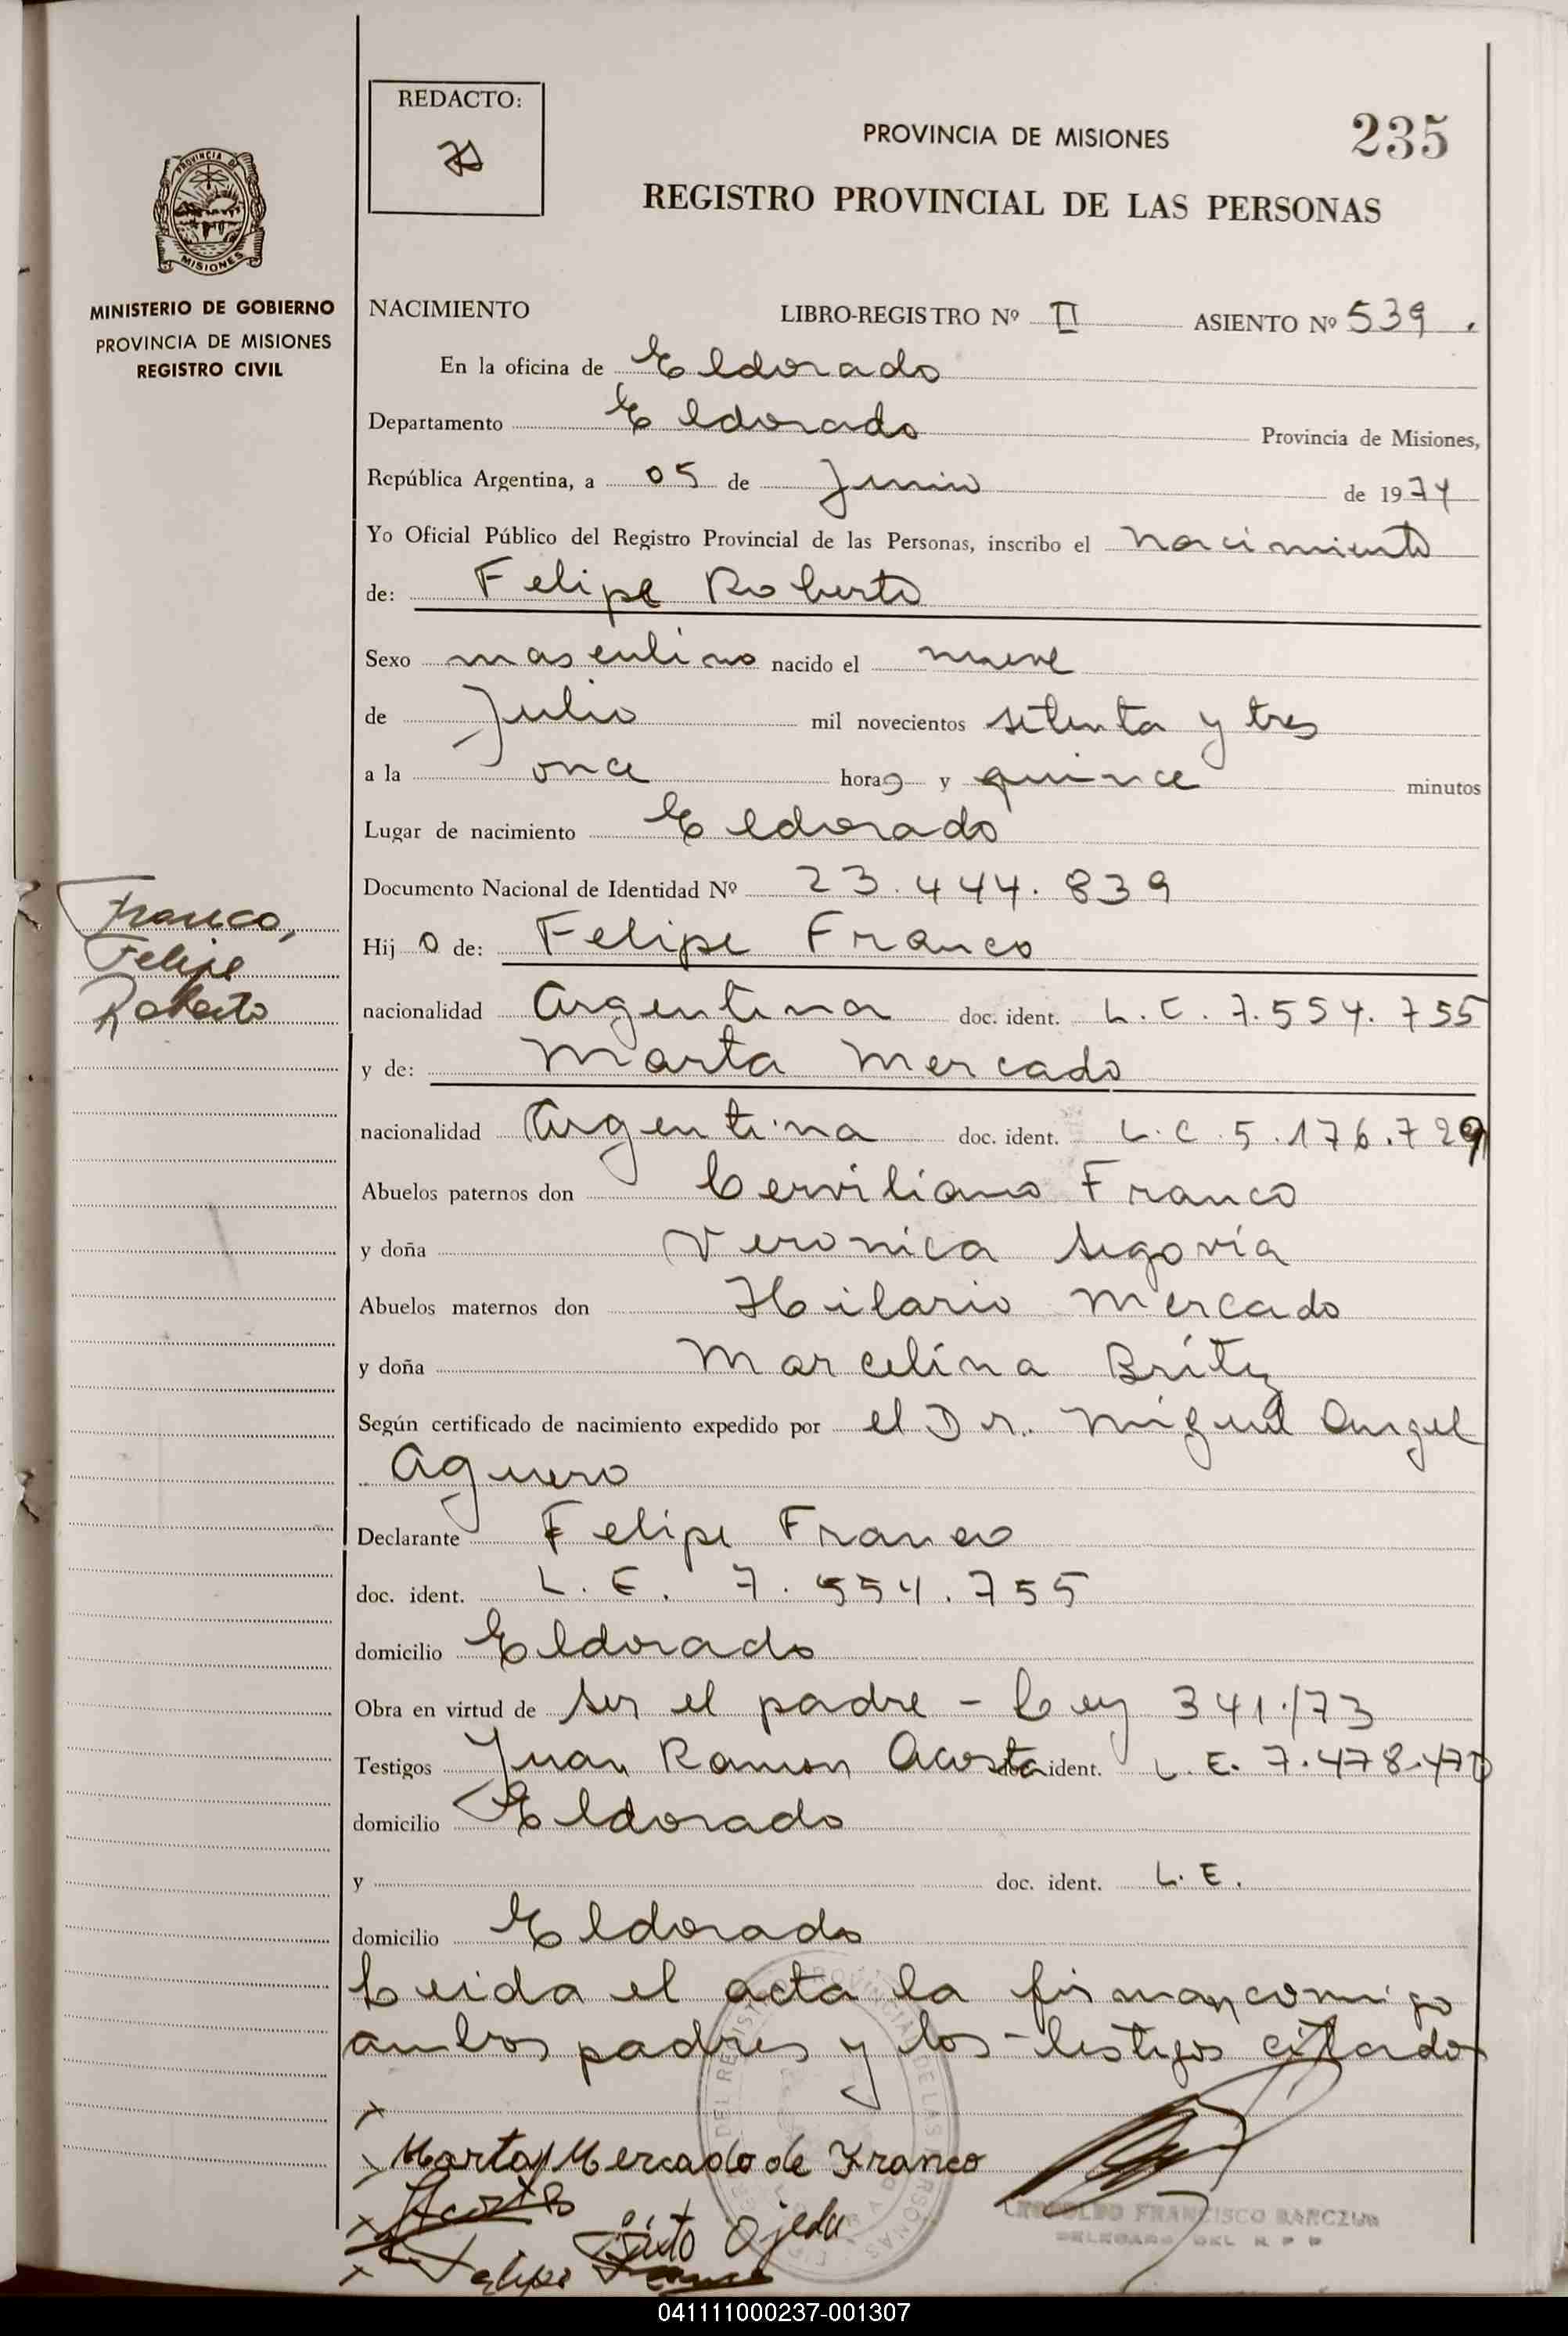 REDACTO:
235
PROVINCIA DE MISIONES
REGISTRO PROVINCIAL DE LAS PERSONAS
PROVINCIA DE
MISIONES
MINISTERIO DE GOBIERNO
PROVINCIA DE MISIONES
REGISTRO CIVIL
NACIMIENTO LIBRO-REGISTRO Nº II ASIENTO Nº 539.
En la oficina de Eldorado
Departamento Eldorado Provincia de Misiones,
República Argentina, a 05 de Junio de 1974
Yo Oficial Público del Registro Provincial de las Personas, inscribo el nacimiento
de: Felipe Roberto
Sexo masculino nacido el nueve
de Julio mil novecientos setenta y tres
a la once horas y quince minutos
Lugar de nacimiento Eldorado
Documento Nacional de Identidad Nº 23.444.839
Franco,
Felipe
Roberto
Hijo de: Felipe Franco
nacionalidad Argentina doc. ident. L.E. 7.554.755
y de: Marta Mercado
nacionalidad Argentina doc. ident. L.C. 5.176.729
Abuelos paternos don Cerviliano Franco
y doña Veronica Segovia
Abuelos maternos don Hilario Mercado
y doña Marcelina Britz
Según certificado de nacimiento expedido por el Dr. Miguel Angel
Aguero
Declarante Felipe Franco
doc. ident. L.E. 7.554.755
domicilio Eldorado
Obra en virtud de ser el padre - Ley 341./73
Testigos Juan Ramon Acosta doc. ident. L.E. 7.478.470
domicilio Eldorado
y doc. ident. L.E.
domicilio Eldorado
Leida el acta la firman comigo
ambos padres y los testigos citados
Marta Mercado de Franco
Acosta
Sixto Ojeda
Felipe Franco
LEOPOLDO FRANCISCO BANCZUR
DELEGADO DEL R P P
041111000237-001307